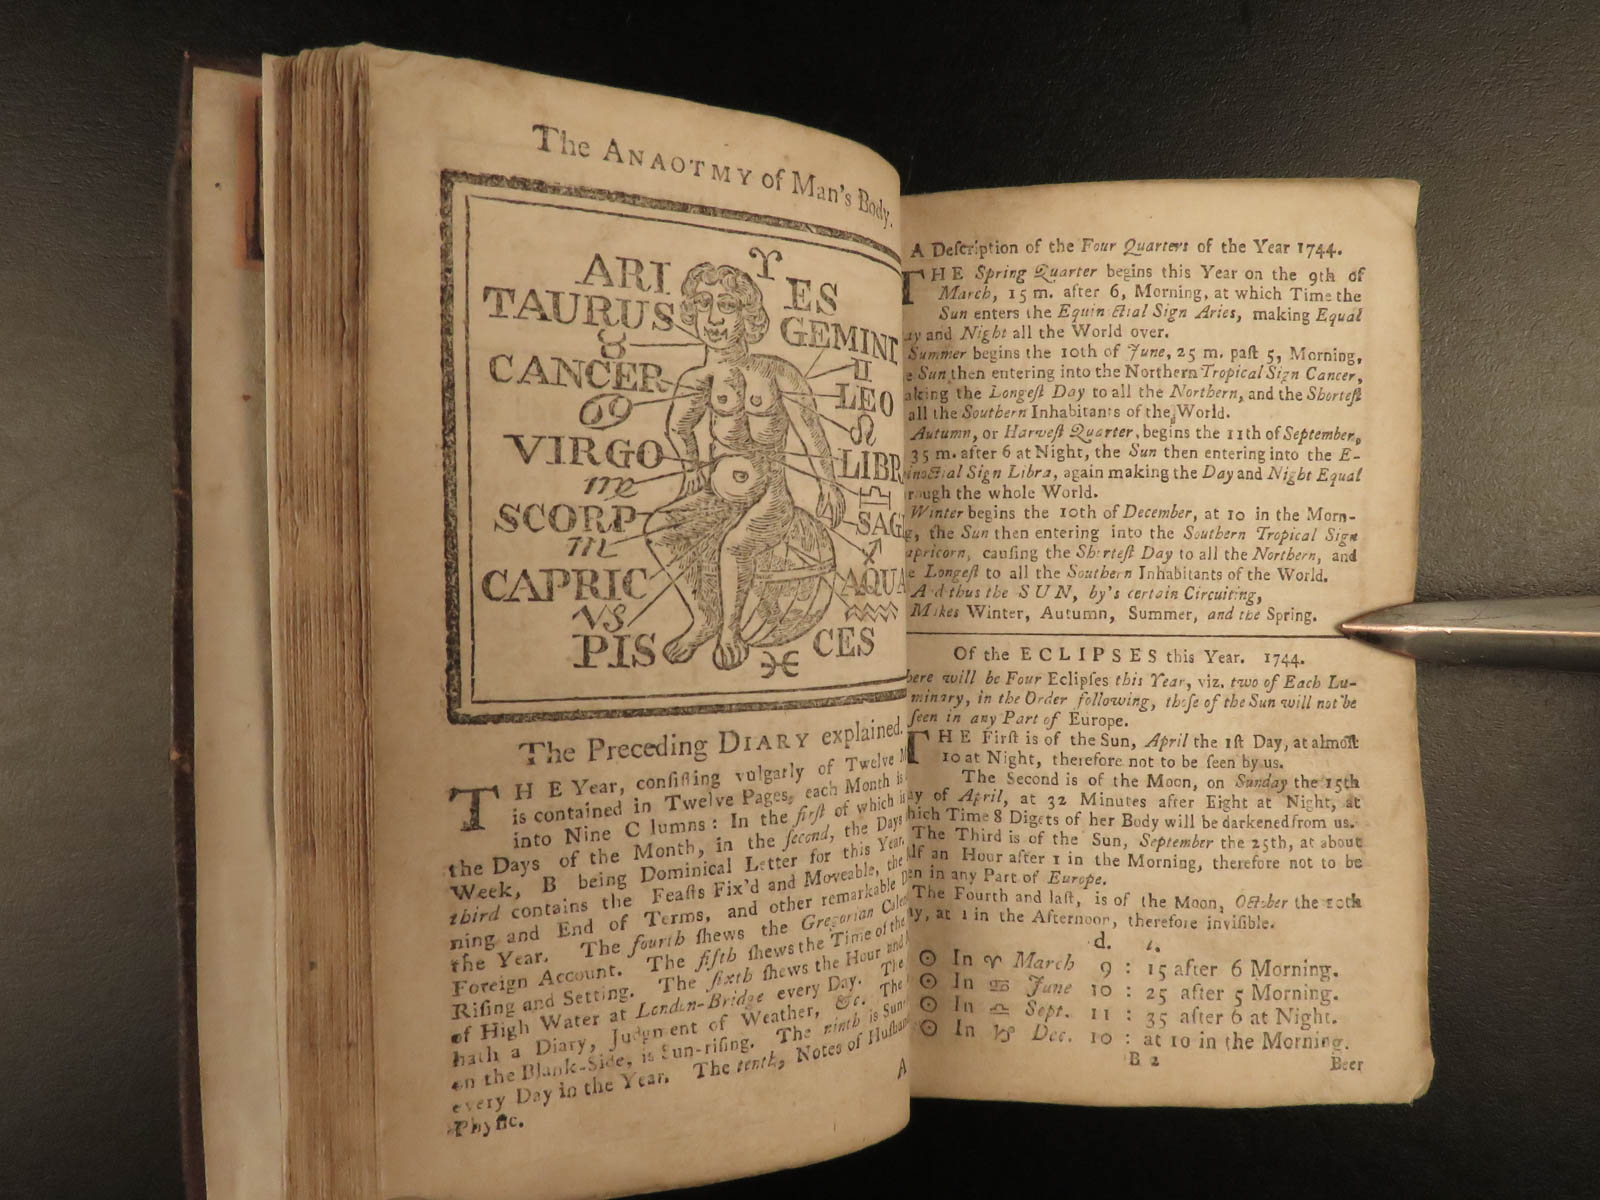 The ANAOTMY of Man's Body.
ARI ♈ ES
TAURUS
♉
GEMINI
♊
CANCER
♋
LEO
♌
VIRGO
♍
LIBR
♎
SCORP
♏
SAG
♐
CAPRIC
♑
AQUA
♒
PIS ♓ CES
The Preceding DIARY explained.
THE Year, conſiſting vulgarly of Twelve M
is contained in Twelve Pages, each Month is
into Nine C lumns: In the firſt of which is
the Days of the Month, in the ſecond, the Days
Week, B being Dominical Letter for this Year,
third contains the Feaſts Fix'd and Moveable, the
ning and End of Terms, and other remarkable D
the Year. The fourth ſhews the Gregorian Calen
Foreign Account. The fifth ſhews the Time of the
Riſing and Setting. The ſixth ſhews the Hour and
of High Water at London-Bridge every Day. The
hath a Diary, Judgment of Weather, &c. The
on the Blank-Side, is Sun-riſing. The ninth is Sun-
every Day in the Year. The tenth, Notes of Huſban
Phyſic.
A
A Deſcription of the Four Quarters of the Year 1744.
THE Spring Quarter begins this Year on the 9th of
March, 15 m. after 6, Morning, at which Time the
Sun enters the Equin ctial Sign Aries, making Equal
ay and Night all the World over.
Summer begins the 10th of June, 25 m. paſt 5, Morning,
e Sun then entering into the Northern Tropical Sign Cancer,
aking the Longeſt Day to all the Northern, and the Shorteſt
all the Southern Inhabitants of the World.
Autumn, or Harveſt Quarter, begins the 11th of September,
35 m. after 6 at Night, the Sun then entering into the E-
inoctial Sign Libra, again making the Day and Night Equal
rough the whole World.
Winter begins the 10th of December, at 10 in the Morn-
g, the Sun then entering into the Southern Tropical Sign
apricorn, cauſing the Shorteſt Day to all the Northern, and
e Longeſt to all the Southern Inhabitants of the World.
And thus the SUN, by's certain Circuiting,
Makes Winter, Autumn, Summer, and the Spring.
Of the ECLIPSES this Year. 1744.
here will be Four Eclipſes this Year, viz. two of Each Lu-
minary, in the Order following, thoſe of the Sun will not be
ſeen in any Part of Europe.
THE Firſt is of the Sun, April the 1ſt Day, at almoſt
10 at Night, therefore not to be ſeen by us.
The Second is of the Moon, on Sunday the 15th
ay of April, at 32 Minutes after Eight at Night, at
hich Time 8 Digets of her Body will be darkened from us.
The Third is of the Sun, September the 25th, at about
lf an Hour after 1 in the Morning, therefore not to be
en in any Part of Europe.
The Fourth and laſt, is of the Moon, October the 10th
ay, at 1 in the Afternoon, therefore inviſible.
d.
☉ In ♈ March 9 : 15 after 6 Morning.
☉ In ♋ June 10 : 25 after 5 Morning.
☉ In ♎ Sept. 11 : 35 after 6 at Night.
☉ In ♑ Dec. 10 : at 10 in the Morning.
B 2
Beer